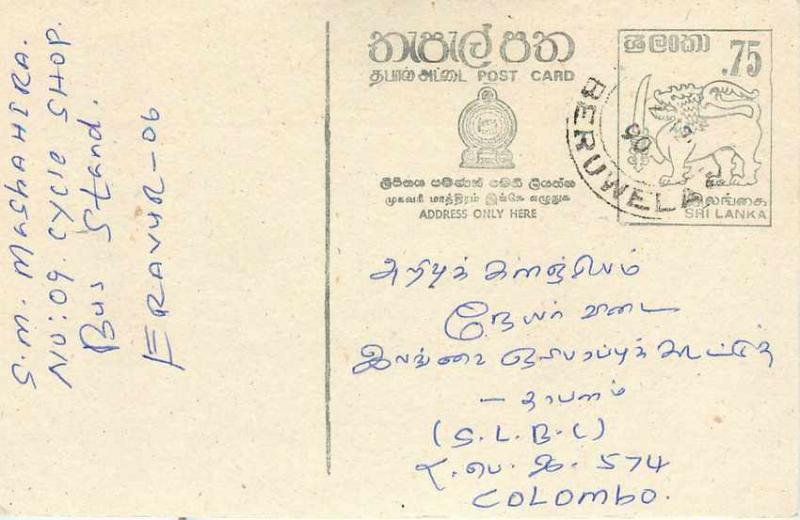 S.M. MASHAHIRA.
NO:09. CYCLE SHOP
Bus Stand.
ERAVUR-06
තැපැල් පත
தபால் அட்டை POST CARD
ලිපිනය පමණක් මෙහි ලියන්න
முகவரி மாத்திரம் இங்கே எழுதுக
ADDRESS ONLY HERE
ශ්‍රී ලංකා
.75
BERUWELA
90
இலங்கை
SRI LANKA
அறிவுக் களஞ்சியம்
நேயர் விடை
இலங்கை ஒலிபரப்புக் கூட்டுத்
- தாபனம்
(S.L.B.C)
த.பெ.இ. 574
COLOMBO.